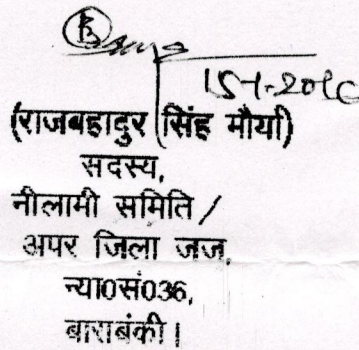 (राजबहादुर सिंह मौर्या)
सदस्य,
नीलामी समिति /
अपर जिला जज,
न्या0सं036,
बाराबंकी।